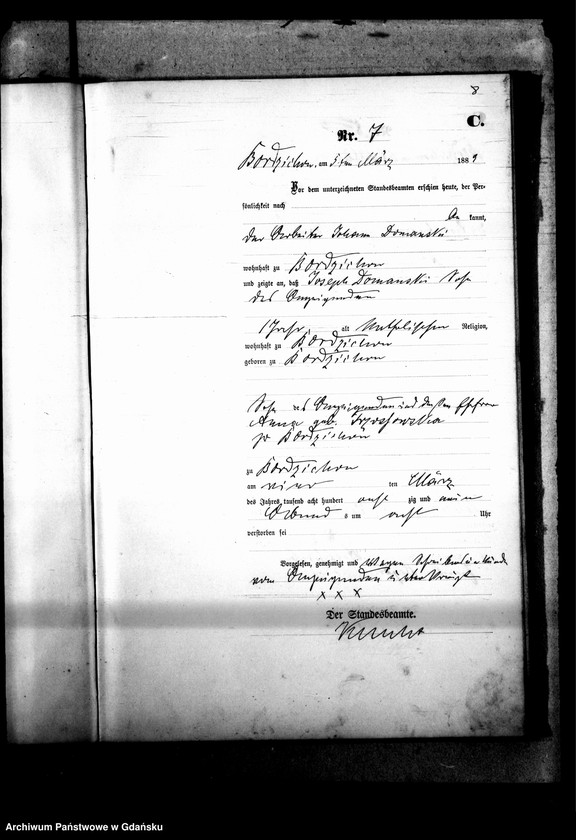 8
C.
Nr. 7
Bordzichow, am 5ten März 1889
Vor dem unterzeichneten Standesbeamten erschien heute, der Per-
sönlichkeit nach
kannt,
der Arbeiter Johann Domanski
wohnhaft zu Bordzichow
und zeigte an, daß Joseph Domanski Sohn
des Anzeigenden
1 Jahr, alt katholischer Religion,
wohnhaft zu Bordzichow
geboren zu Bordzichow
Sohn des Anzeigenden und dessen Ehefrau
geb.
zu Bordzichow
zu Bordzichow
am vier ten März
des Jahres tausend acht hundert acht zig und neun
Abend s um acht Uhr
verstorben sei
Vorgelesen, genehmigt und wegen Schreibensunkunde
vom Anzeigenden unterkreuzt
x x x
Der Standesbeamte.
Archiwum Państwowe w Gdańsku